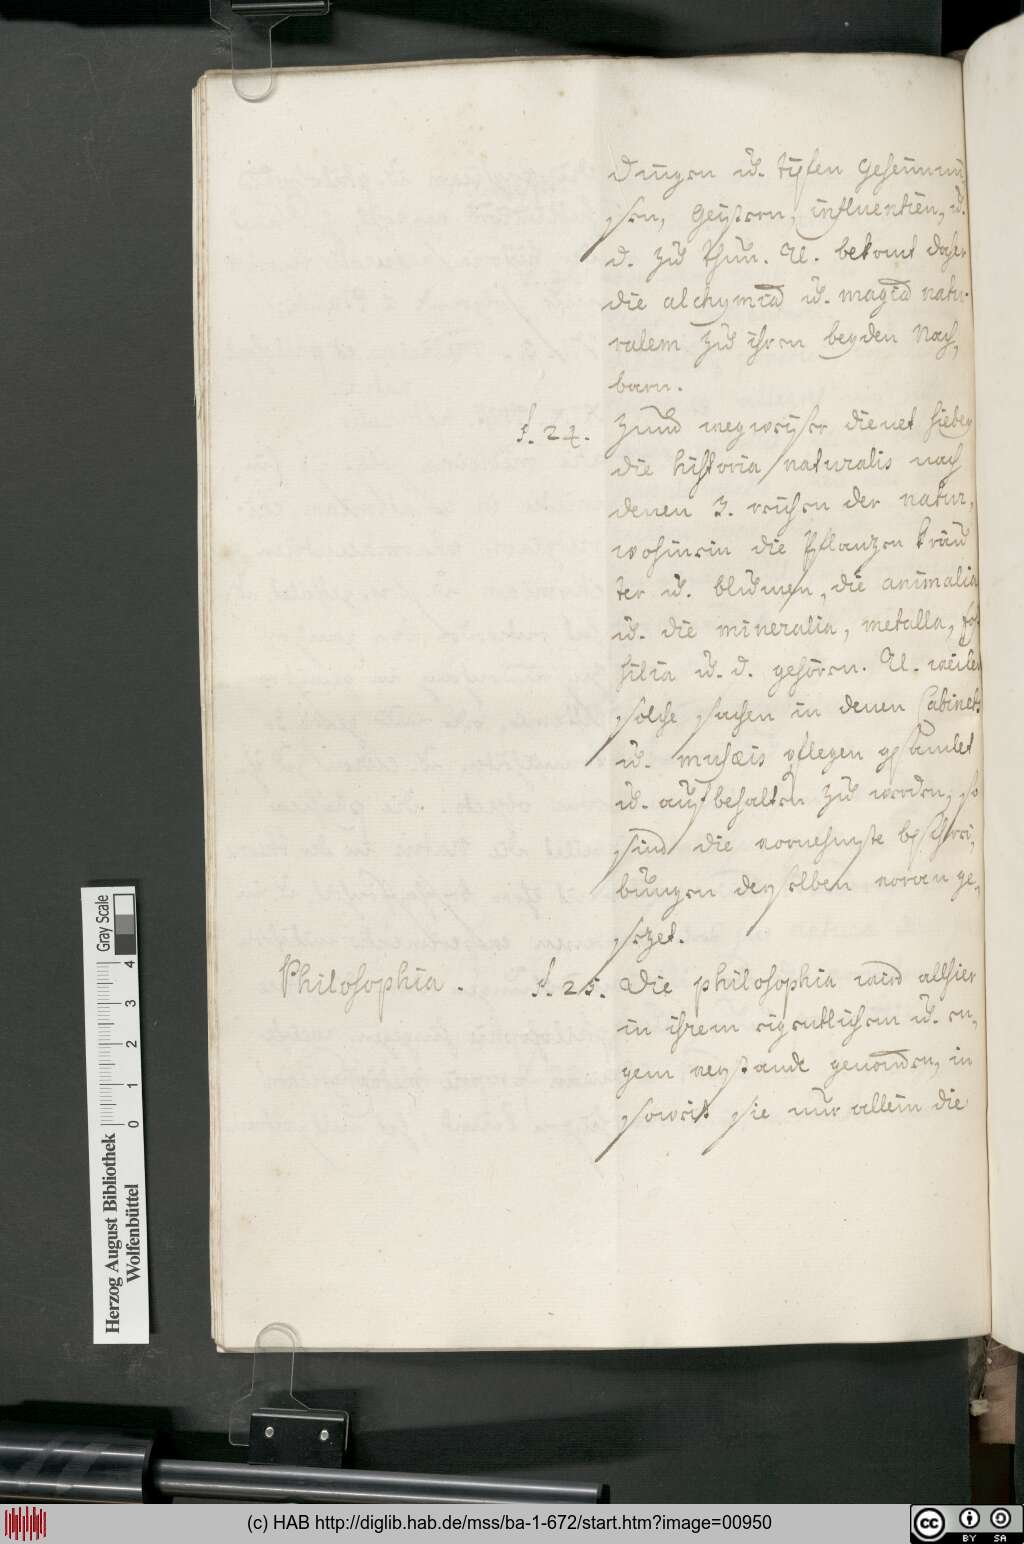 Dingen ü. tiefen Geheimni
ssen, Geistern, influentien, ü.
d. zü thün. U. bekomt daher
die alchymia ü. magia natu-
ralem zü ihren beyden Nach,
barn.
§. 24. Zum wegweiser dienet hiebey
die historia naturalis nach
denen 3. reichen der natur,
wohinein die Pflanzen Kräü
ter ü. blümen, die animalia
ü. die mineralia, metalla, fos
silia ü. d. gehören. U. weilen
solche sachen in denen Cabinet
ü. musæis pflegen gesamlet
ü. aufbehalten zü werden, so
sind die vornehmste beschrei,
büngen derselben voran ge,
sezet.
Philosophia. §. 25. Die philosophia wird allhier
in ihrem eigentlichem ü. en,
gem verstande genommen, in
soweit sie nur allein die
Gray Scale
4 3 2 1 0
Herzog August Bibliothek
Wolfenbüttel
(c) HAB http://diglib.hab.de/mss/ba-1-672/start.htm?image=00950
cc BY SA